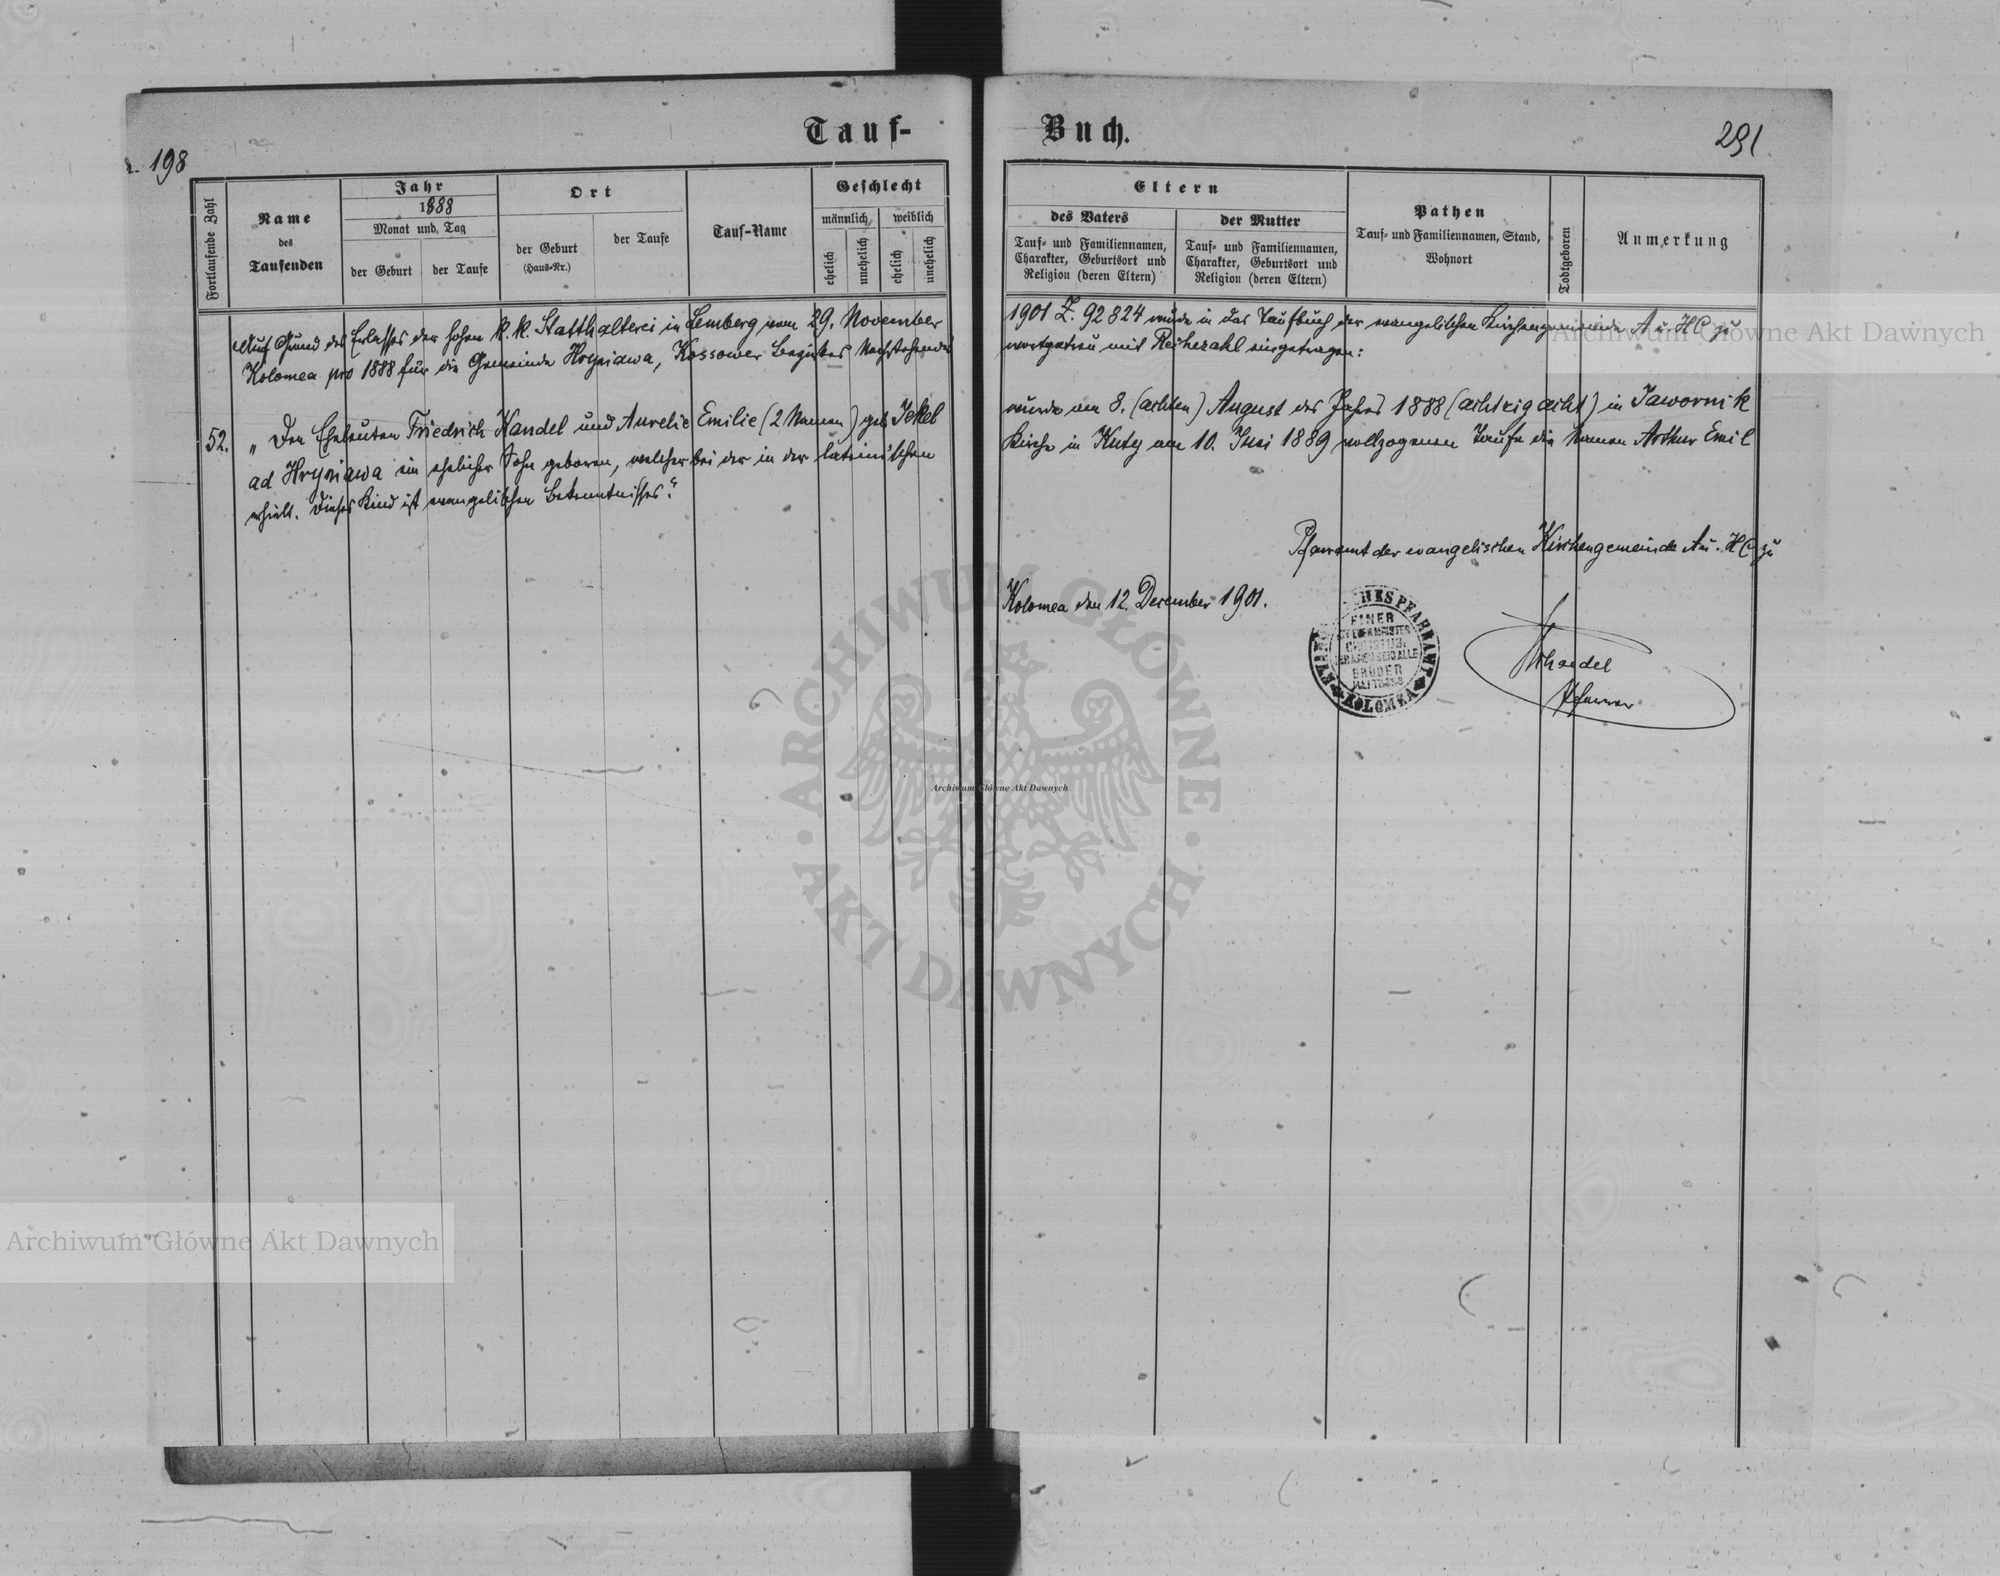 Tauf-
Buch.
198
291
Fortlaufende Zahl
Name
des
Taufenden
Jahr
1888
Monat und Tag
der Geburt
der Taufe
Ort
der Geburt
(Haus-Nr.)
der Taufe
Tauf-Name
Geschlecht
männlich
weiblich
ehelich
unehelich
ehelich
unehelich
Eltern
des Vaters
Tauf- und Familiennamen,
Charakter, Geburtsort und
Religion (deren Eltern)
der Mutter
Tauf- und Familiennamen,
Charakter, Geburtsort und
Religion (deren Eltern)
Pathen
Tauf- und Familiennamen, Stand,
Wohnort
Todtgeboren
Anmerkung
Auf Grund des Erlasses der hohen k. k. Statthalterei in Lemberg vom 29. November
1901 Z. 92824 wurde in das Taufbuch der evangelischen Kirchengemeinde A u. HC zu
Kolomea pro 1888 für die Gemeinde Hryniawa, Kossower Bezirkes Nachstehendes
wortgetreu mit Reihezahl eingetragen:
52. „Den Eheleuten Friedrich Kandel und Aurelie Emilie (2 Namen) geb. Jekel
wurde am 8. (achten) August des Jahres 1888 (achtzig acht) in Jawornik
ad Hryniawa ein ehelicher Sohn geboren, welcher bei der in der lateinischen
Kirche in Kuty am 10. Juni 1889 vollzogenen Taufe die Namen Arthur Emil
erhielt. Dieses Kind ist evangelischen Bekenntnisses."
Pfarramt der evangelischen Kirchengemeinde A u. HC zu
Kolomea den 12. Dezember 1901.
PFARRAMT
KOLOMEA
EINER
BRÜDER
Pfarrer
ARCHIWUM GŁÓWNE
AKT DAWNYCH
Archiwum Główne Akt Dawnych
Archiwum Główne Akt Dawnych
Archiwum Główne Akt Dawnych